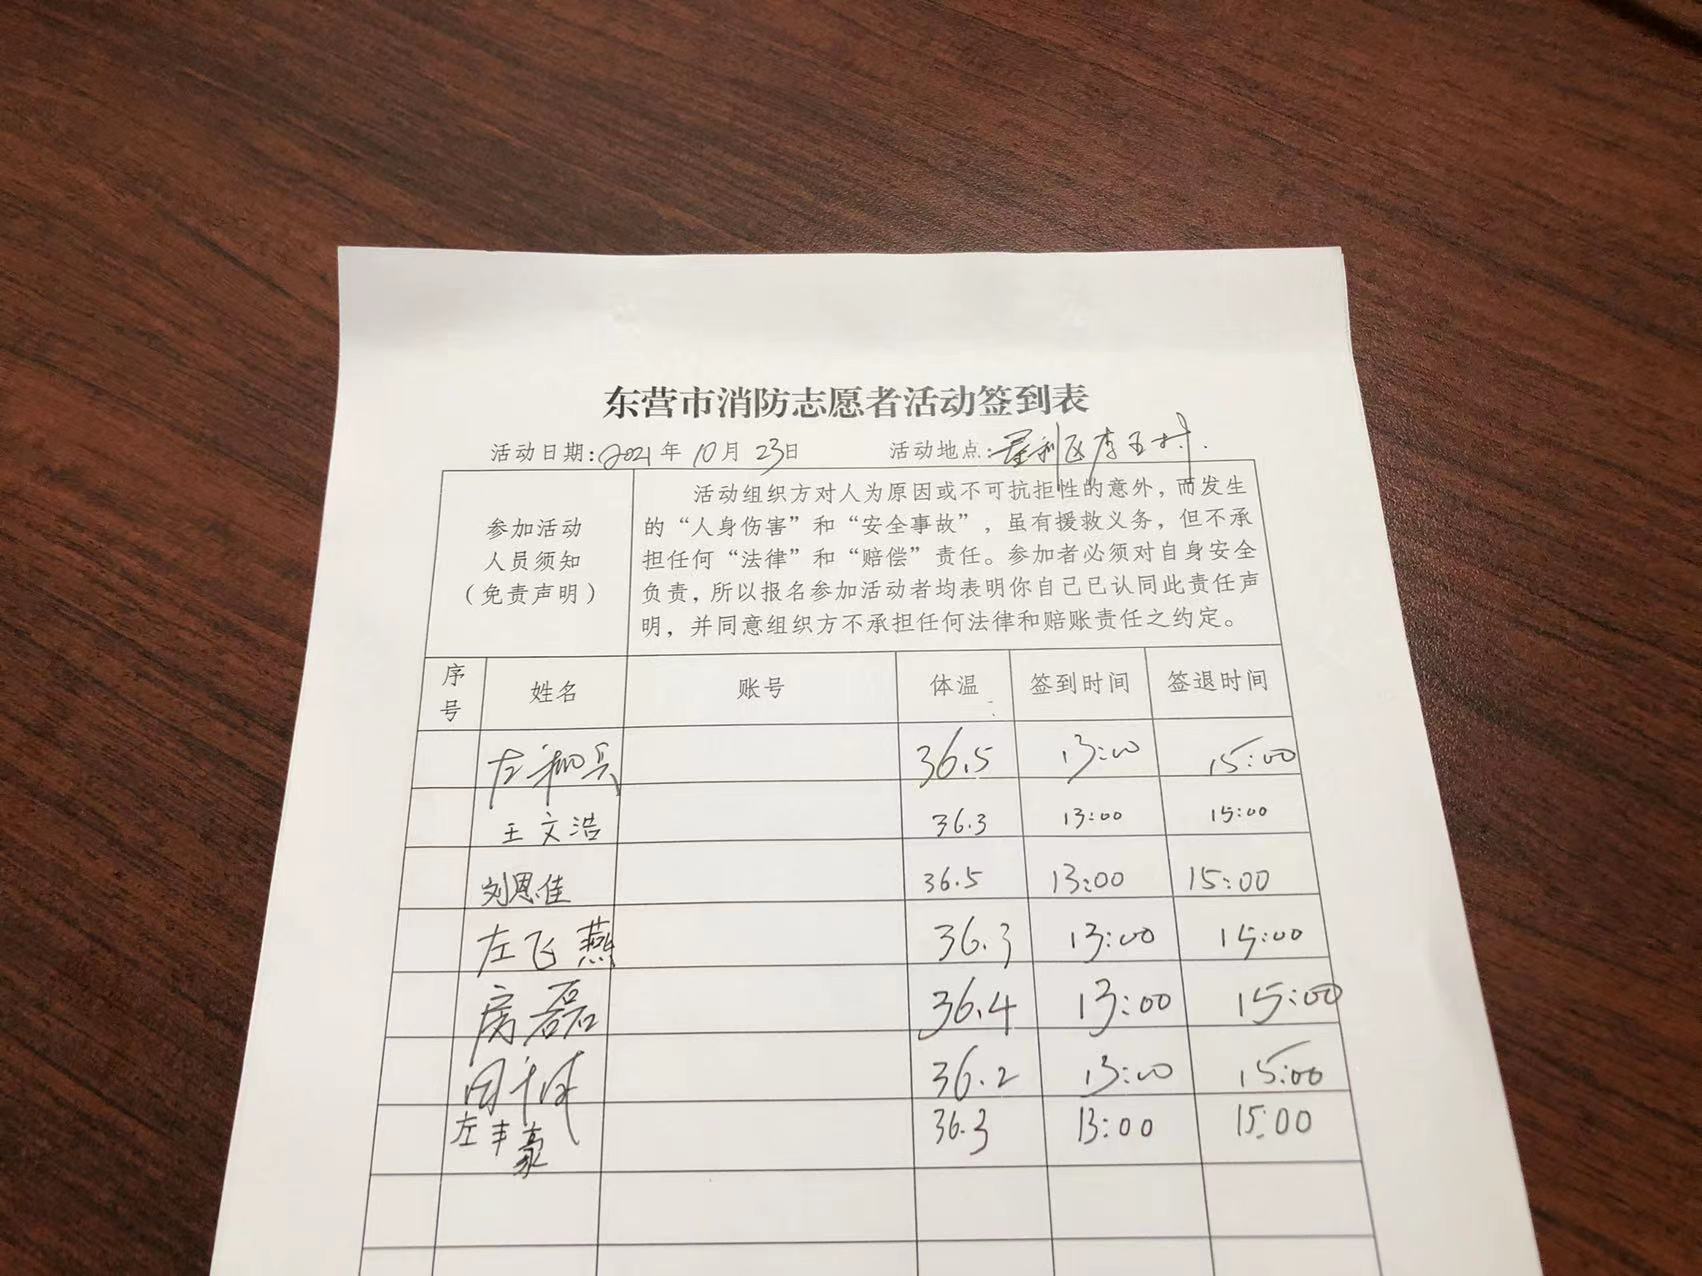 东营市消防志愿者活动签到表
活动日期:2021年10月23日 活动地点:垦利区李王村.
参加活动
人员须知
(免责声明)
活动组织方对人为原因或不可抗拒性的意外，而发生
的“人身伤害”和“安全事故”，虽有援救义务，但不承
担任何“法律”和“赔偿”责任。参加者必须对自身安全
负责，所以报名参加活动者均表明你自己已认同此责任声
明，并同意组织方不承担任何法律和赔账责任之约定。
序号 姓名 账号 体温 签到时间 签退时间
左 兵 36.5 13:00 15:00
王文浩 36.3 13:00 15:00
刘恩佳 36.5 13:00 15:00
左飞燕 36.3 13:00 15:00
房磊 36.4 13:00 15:00
36.2 13:00 15:00
左丰豪 36.3 13:00 15:00